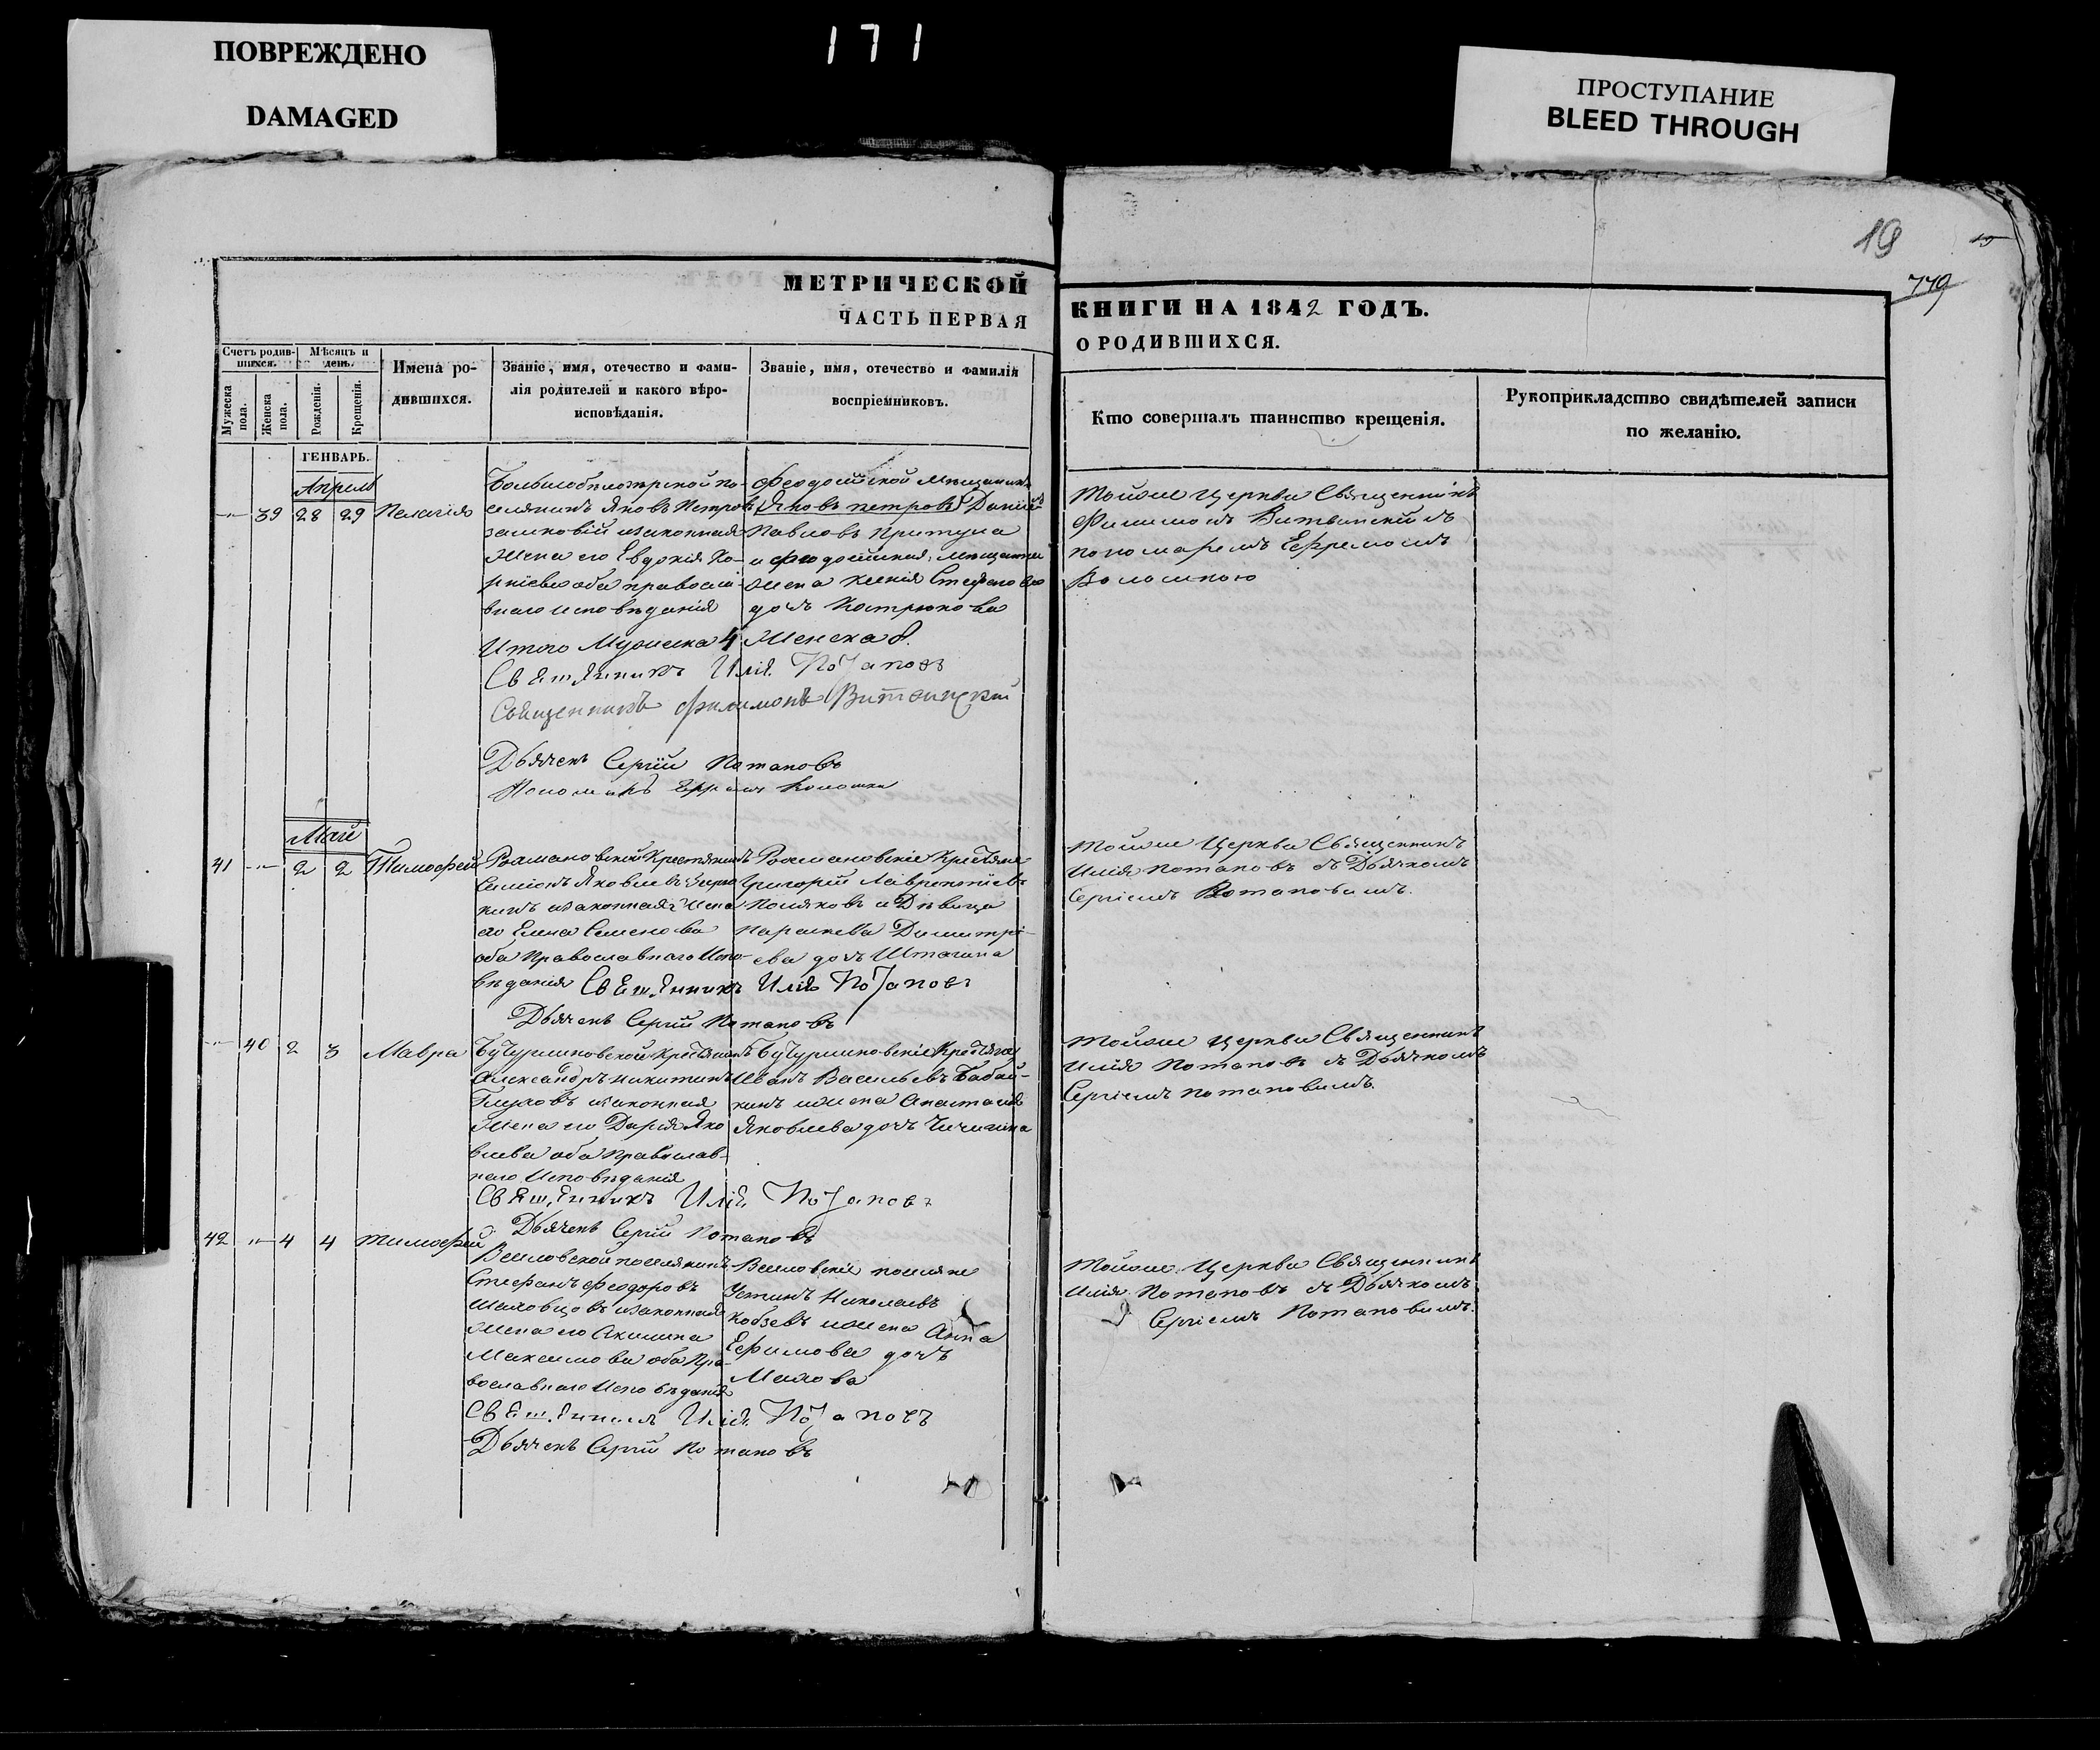 ПОВРЕЖДЕНО
DAMAGED
171
ПРОСТУПАНИЕ
BLEED THROUGH
19
779
МЕТРИЧЕСКОЙ
ЧАСТЬ ПЕРВАЯ
КНИГИ НА 1842 ГОДЪ.
О РОДИВШИХСЯ.
Счетъ родив-
шихся.
Мѣсяцъ и
день.
Мужеска
пола.
Женска
пола.
Рожденія.
Крещенія.
Имена ро-
дившихся.
Званіе, имя, отечество и фами-
лія родителей и какого вѣро-
исповѣданія.
Званіе, имя, отечество и фамилія
воспріемниковъ.
Кто совершалъ таинство крещенія.
Рукоприкладство свидѣтелей записи
по желанію.
ГЕНВАРЬ.
Апрель
39 28 29 Пелагія
по-
селянинъ Яковъ Петровъ
законная
жена его Евдокія Ко-
рнѣева оба правосла-
внаго исповѣданія
Феодосійской мѣщанинъ
Яковъ петровъ Даніилъ
Павловъ Притула
и феодосійская мѣщанина
жена Ксенія Стефанова
дочь Кострюкова
Тойже Церкви Священникъ
Филимонъ Витвинскій съ
пономаремъ Ефремомъ
Волошкою
Итого Мужеска 4 Женска 8.
Свяшянникъ Илія Потаповъ
Священникъ Филимонъ Витвинскій
Дьячекъ Сергій Потаповъ
Пономарь Ефремъ Волошка
Май
41 2 2 Тимофей
Романовской Крестянинъ
Симіонъ Яковлевъ
законная жена
его Елена Семенова
оба Православнаго Испо-
вѣданія
Романовскіе Крестьяне
Григорій Лаврентіевъ
Поляковъ и Дѣвица
Параскева Димитрі-
ева дочь Штагина
Тойже Церкви Священникъ
Илія Потаповъ съ Дьячкомъ
Сергіемъ Потаповымъ.
Свяшянникъ Илія Потаповъ
Дьячекъ Сергій Потаповъ
40 2 3 Мавра
Бутурлиновской Крестьянинъ
Александръ Никитинъ
Глуховъ законная
жена его Дарія Яко
влева оба Православ-
наго Исповѣданія
Бутурлиновскіе Крестьяне
Иванъ Васильевъ Бабай-
кинъ жена Анастасія
Яковлева дочь Чичигина
Тойже Церкви Священникъ
Илія Потаповъ съ Дьячкомъ
Сергіемъ Потаповымъ.
Свяшянникъ Илія Потаповъ
Дьячекъ Сергій Потаповъ
42 4 4 Тимофей
Веселовской поселянинъ
Стефанъ Феодоровъ
Шаховцовъ законная
жена его Акилина
Максимова оба Пра-
вославнаго Исповѣданія
Веселовскіе поселяне
Устинъ Николаевъ
Кобзевъ жена Анна
Ефимова дочь
Махова
Тойже Церкви Священникъ
Илія Потаповъ съ Дьячкомъ
Сергіемъ Потаповымъ.
Свяшянникъ Илія Потаповъ
Дьячекъ Сергій Потаповъ